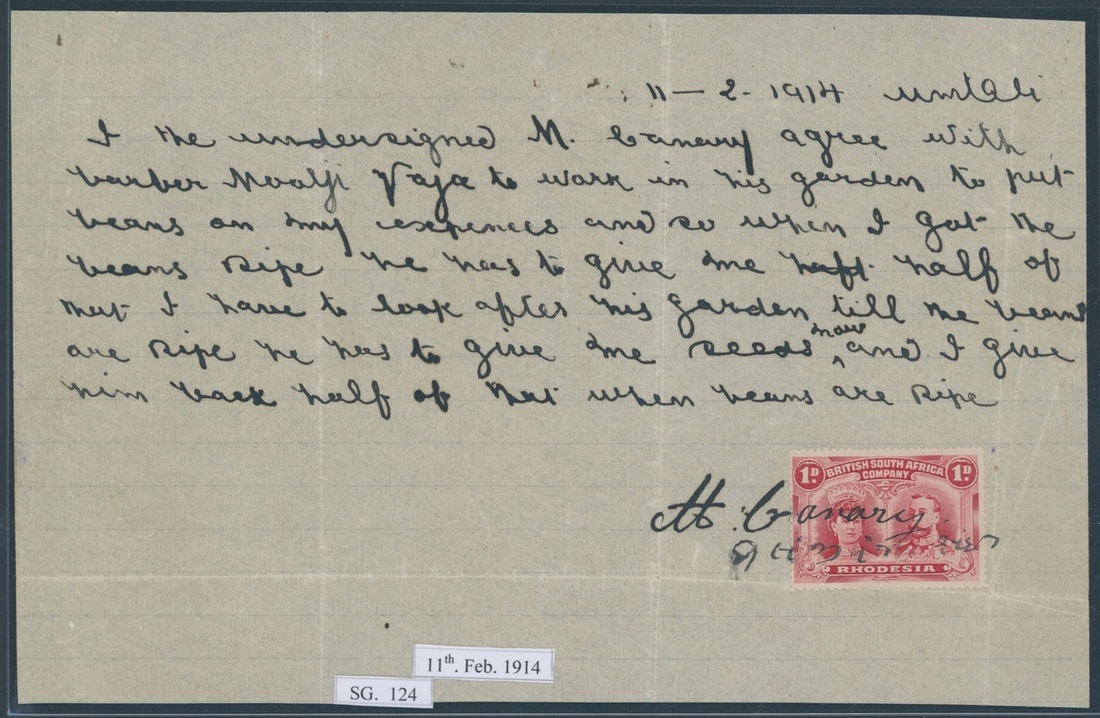 11 – 2 - 1914 Umtali
I the undersigned M. Canary agree with
barber Moolji Vaja to work in his garden to put
beans on my expences and so when I got the
beans ripe he has to give me half of
that I have to look after his garden till the beans
are ripe he has to give me seeds now and I give
him back half of that when beans are ripe
1D. BRITISH SOUTH AFRICA COMPANY 1D.
M. Canary
RHODESIA
11th. Feb. 1914
SG. 124